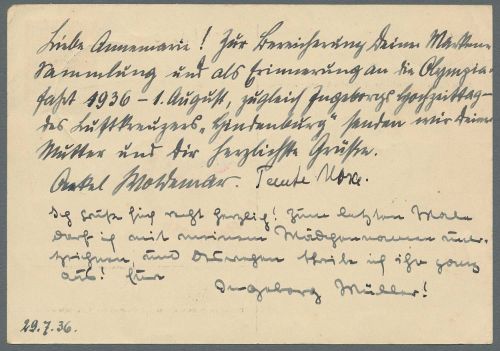 Liebe Annemarie! Zur Bereicherung Deiner Marken-
Sammlung und als Erinnerung an die Olympia-
fahrt 1936 – 1. August, zugleich Ingeborgs Hochzeitstag –
des Luftkreuzers „Hindenburg" senden wir Deiner
Mutter und Dir herzlichste Grüsse.
Onkel Woldemar. Tante
Ich grüße Dich recht herzlich! Zum letzten Male
darf ich mit meinem Mädchennamen unter-
zeichnen, und deswegen schreibe ich ihn ganz
aus!
Ingeborg Müller!
29.7.36.